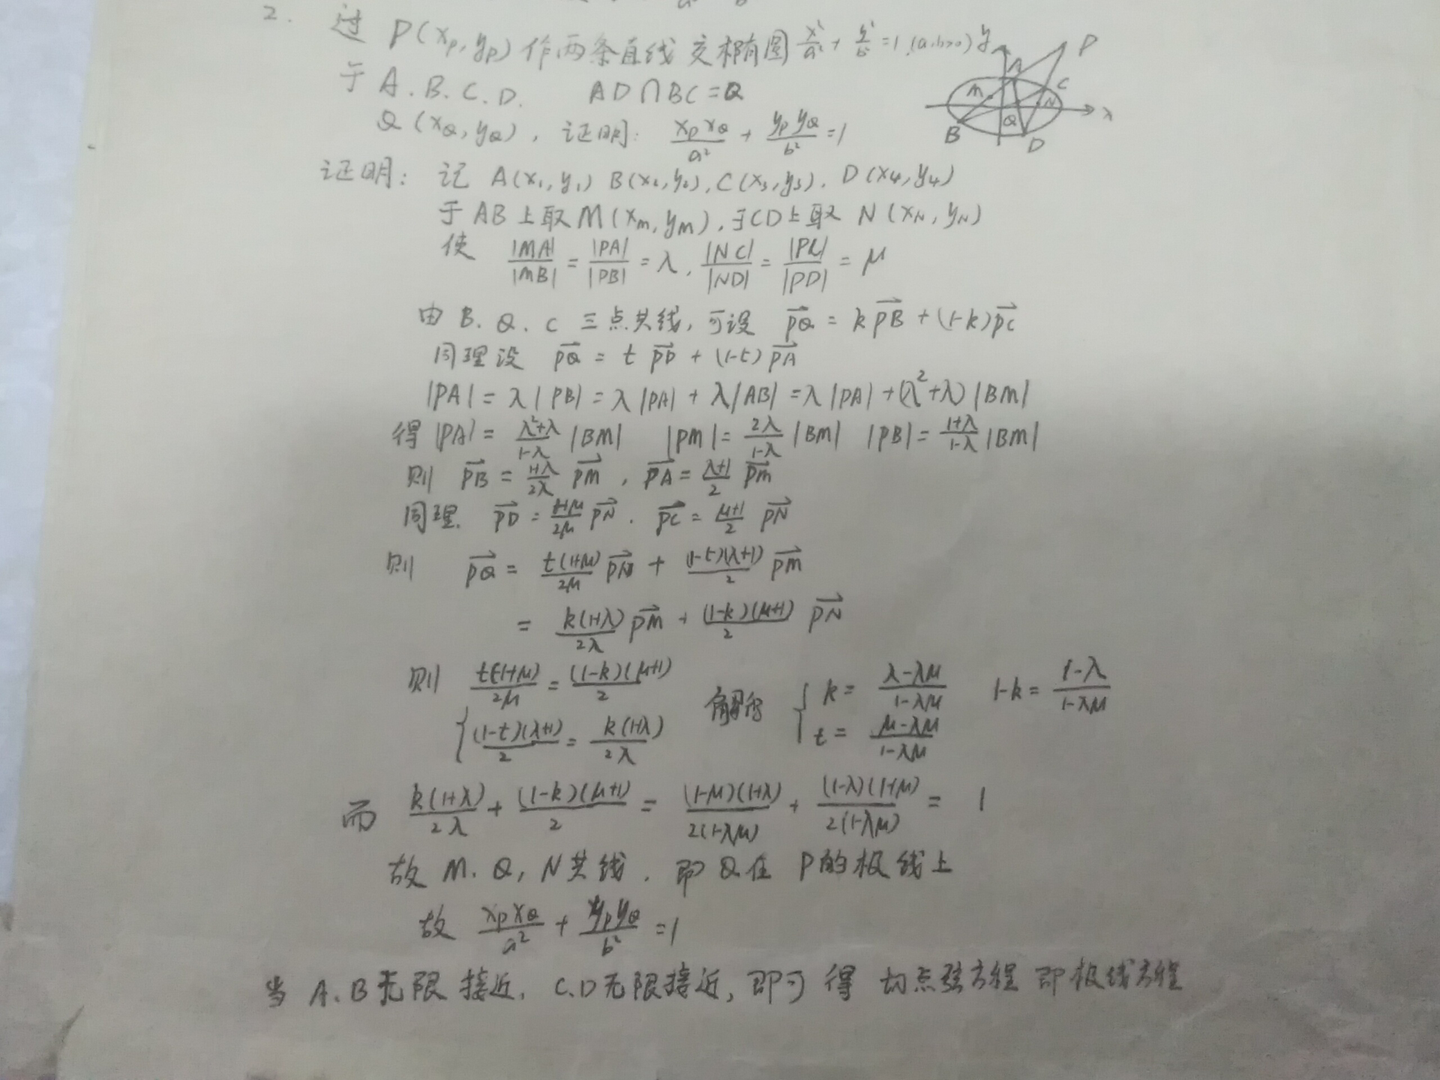 2. 过 P(xₚ, yₚ) 作两条直线 交椭圆 x²/a² + y²/b² = 1 (a,b>0)
于 A.B.C.D. AD∩BC=Q
Q(x_Q, y_Q), 证明: xₚx_Q/a² + yₚy_Q/b² = 1
y P A C M N x Q B D
证明: 记 A(x₁,y₁) B(x₂,y₂), C(x₃,y₃), D(x₄,y₄)
于 AB 上取 M(x_m, y_M), 于 CD 上取 N(x_N, y_N)
使 |MA|/|MB| = |PA|/|PB| = λ, |NC|/|ND| = |PC|/|PD| = μ
由 B. Q. C 三点共线, 可设 PQ→ = k PB→ + (1-k) PC→
同理设 PQ→ = t PD→ + (1-t) PA→
|PA| = λ|PB| = λ|PA| + λ|AB| = λ|PA| + (λ²+λ)|BM|
得 |PA| = (λ²+λ)/(1-λ) |BM| |PM| = 2λ/(1-λ) |BM| |PB| = (1+λ)/(1-λ) |BM|
则 PB→ = (1+λ)/2λ PM→, PA→ = (λ+1)/2 PM→
同理. PD→ = (1+μ)/2μ PN→. PC→ = (μ+1)/2 PN→
则 PQ→ = t(1+μ)/2μ PN→ + (1-t)(λ+1)/2 PM→
= k(1+λ)/2λ PM→ + (1-k)(μ+1)/2 PN→
则 { t(1+μ)/2μ = (1-k)(μ+1)/2 解得 { k = (λ-λμ)/(1-λμ) 1-k = (1-λ)/(1-λμ)
(1-t)(λ+1)/2 = k(1+λ)/2λ t = (μ-λμ)/(1-λμ)
而 k(1+λ)/2λ + (1-k)(μ+1)/2 = (1-μ)(1+λ)/2(1-λμ) + (1-λ)(1+μ)/2(1-λμ) = 1
故 M. Q, N共线. 即 Q在 P的极线上
故 xₚx_Q/a² + yₚy_Q/b² = 1
当 A.B无限接近, C.D无限接近, 即可得 切点弦方程 即极线方程